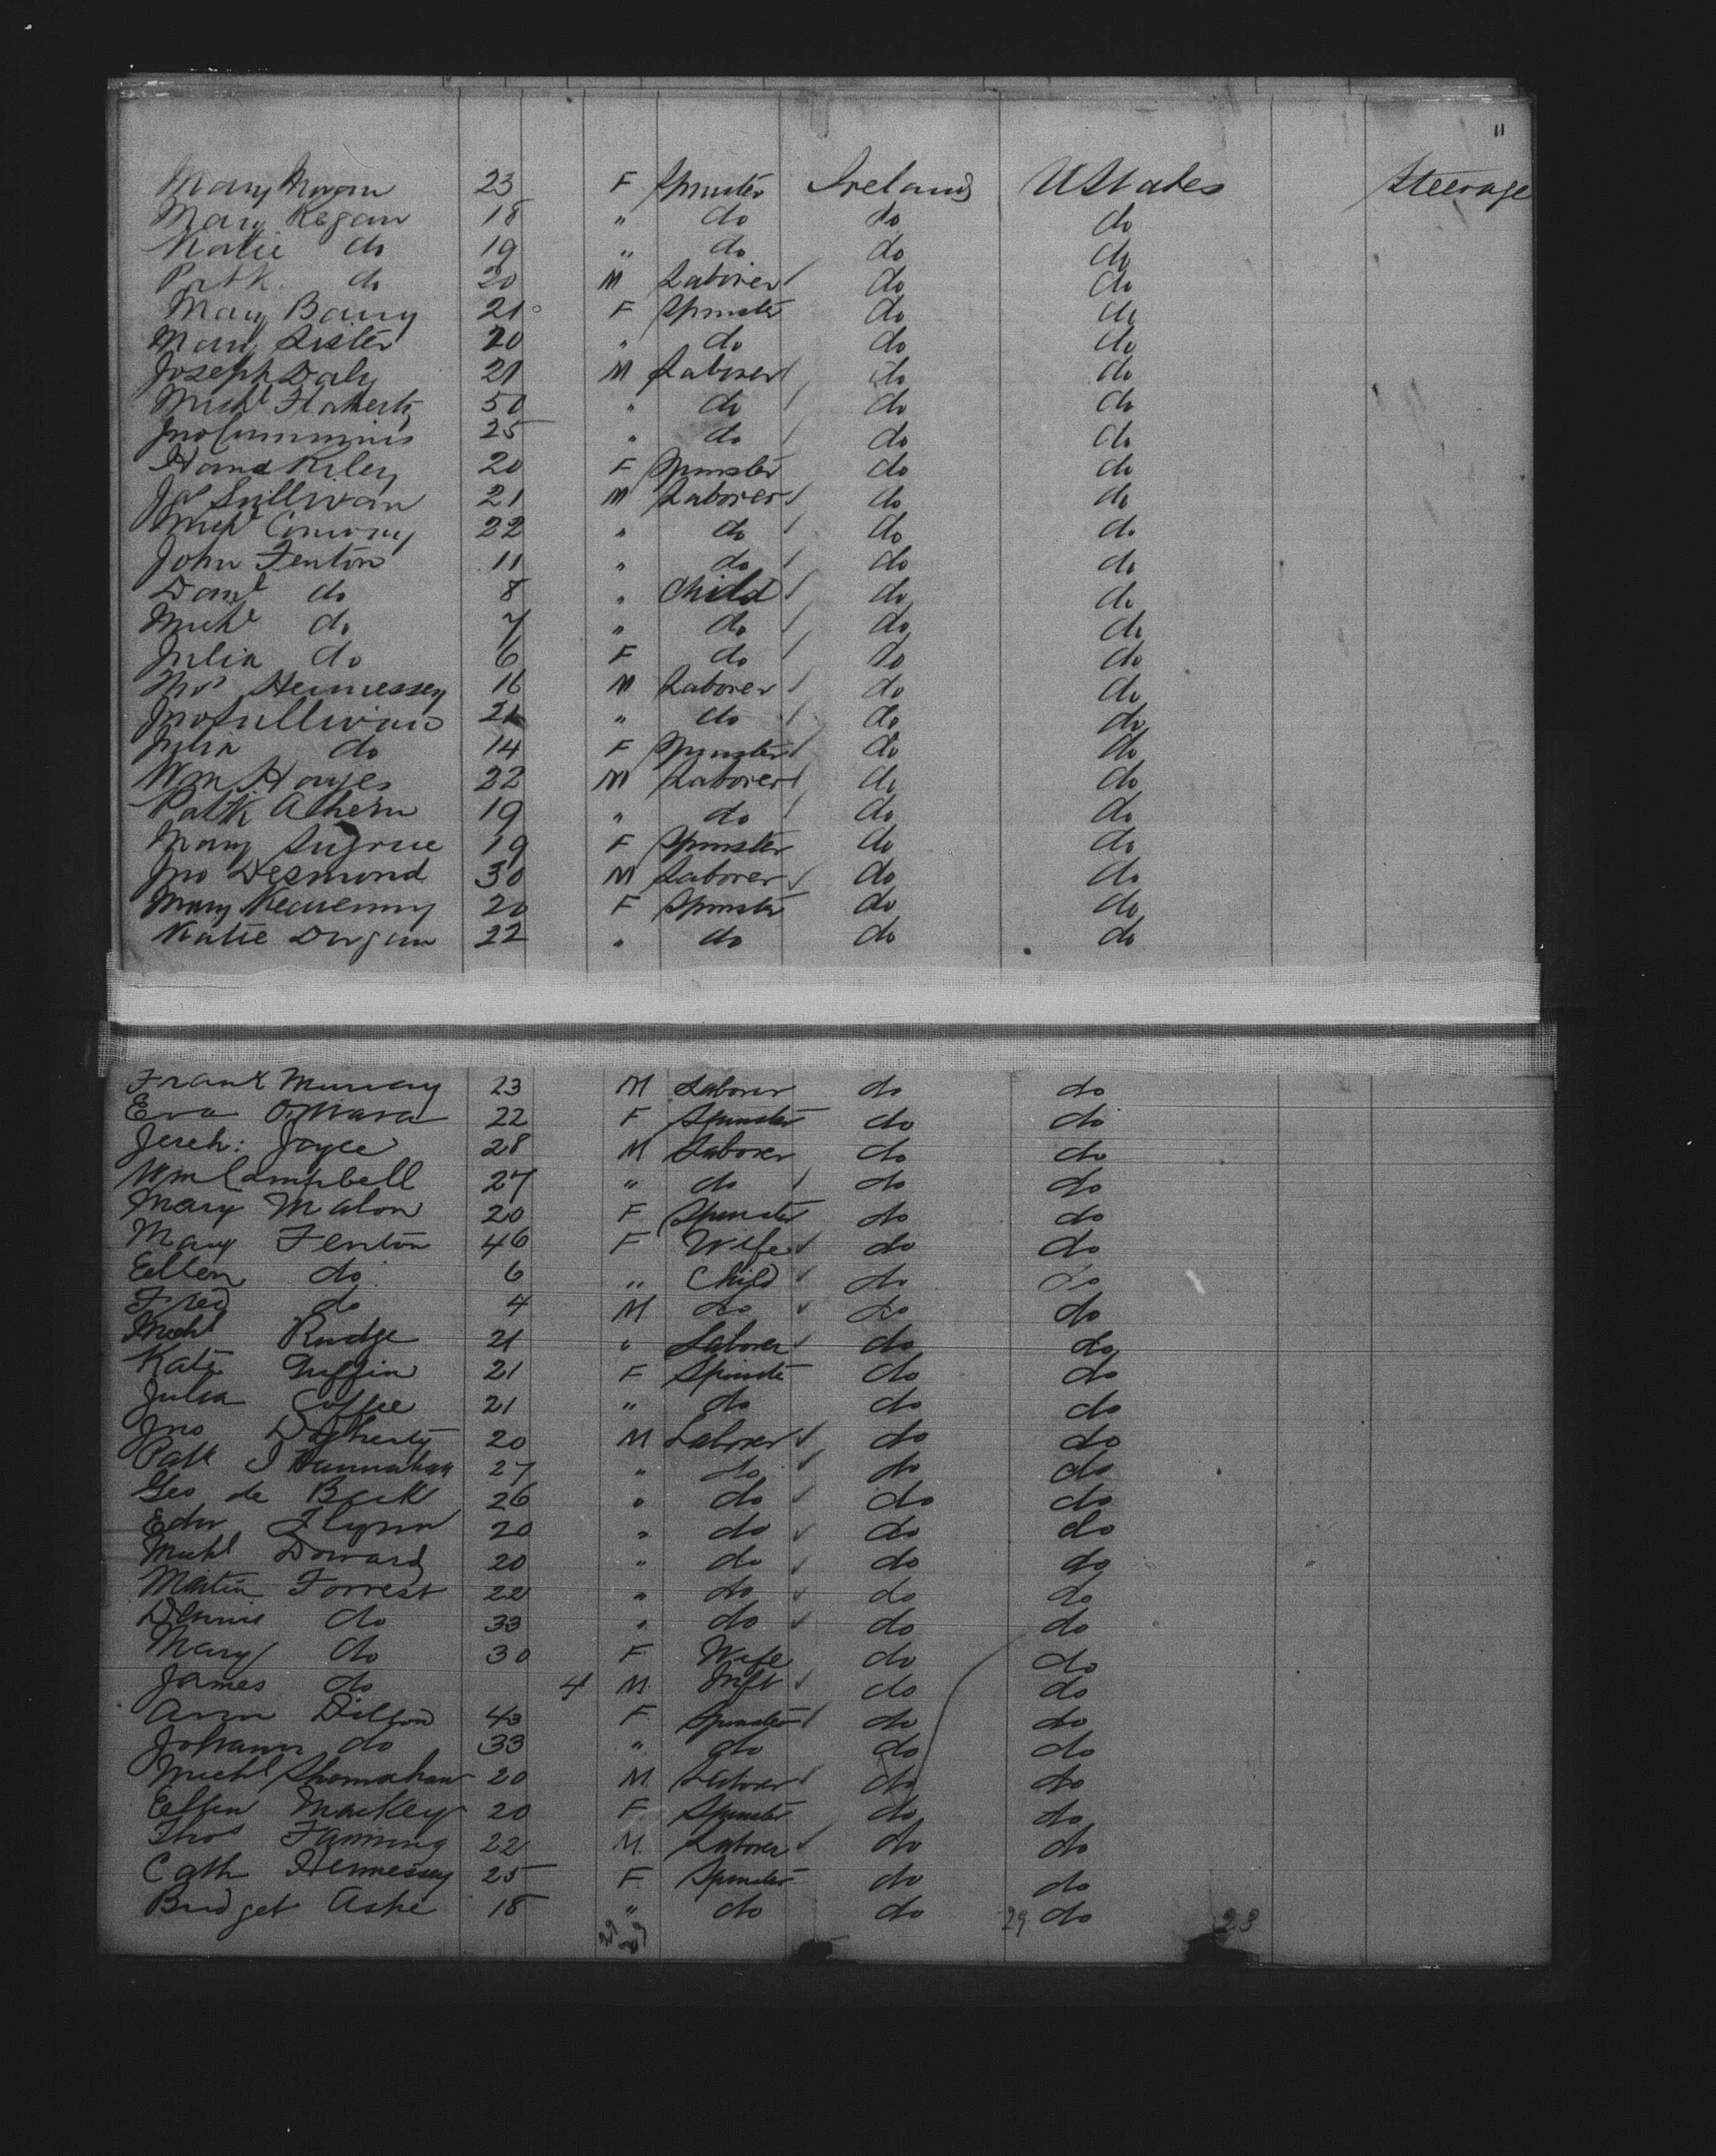 11
Mary Morgan 23 F Spinster Ireland UStates Steerage
Mary Regan 18 " do do do
Katie do 19 " do do do
Patk. do 20 M Laborer do do
Mary Barry 21 F Spinster do do
Mary Lister 20 " do do do
Joseph Daly 21 M Laborer do do
Michl Flaherty 50 " do do do
Jno Cummins 25 " do do do
Hana Riley 20 F Spinster do do
Sullivan 21 M Laborer do do
Michl Conway 22 " do do do
John Fenton 11 " do do do
Danl do 8 " Child do do
Michl do 7 " do do do
Julia do 6 F do do do
Thos Hennessey 16 M Laborer do do
Jno Sullivan 21 " do do do
Julia do 14 F Spinster do do
Wm Hayes 22 M Laborer do do
Patk Ahern 19 " do do do
Mary Sugrue 19 F Spinster do do
Jno Desmond 30 M Laborer do do
Mary 20 F Spinster do do
Katie 22 " do do do
Frank Murray 23 M Laborer do do
Eva O'Mara 22 F Spinster do do
Jereh: Joyce 28 M Laborer do do
Wm Campbell 27 " do do do
Mary Malon 20 F Spinster do do
Mary Fenton 46 F Wife do do
Ellen do 6 " Child do do
Fred do 4 M do do do
Michl Rudge 21 " Laborer do do
Kate 21 F Spinste do do
Julia Coffee 21 " do do do
Jno Dogherty 20 M Laborer do do
Patk J Hannahan 27 " do do do
Geo de Beck 26 " do do do
Edw Flynn 20 " do do do
Michl Doward 20 " do do do
Martin Forrest 22 " do do do
Dennis do 33 " do do do
Mary do 30 F Wife do do
James do 4 M. Inft do do
Ann Dillon 43 F Spinster do do
Johann do 33 " do do do
Michl 20 M. Laborer do do
Ellen Mackey 20 F Spinster do do
Thos Fanning 22 M. Laborer do do
Cath Hennessey 25 F. Spinster do do
Bridget Ashe 18 " do do 29 do 23